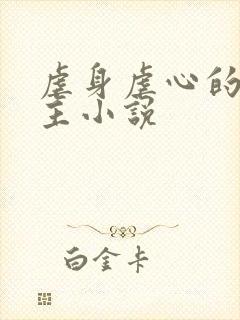 虐身虐心的
主小説
白金卡